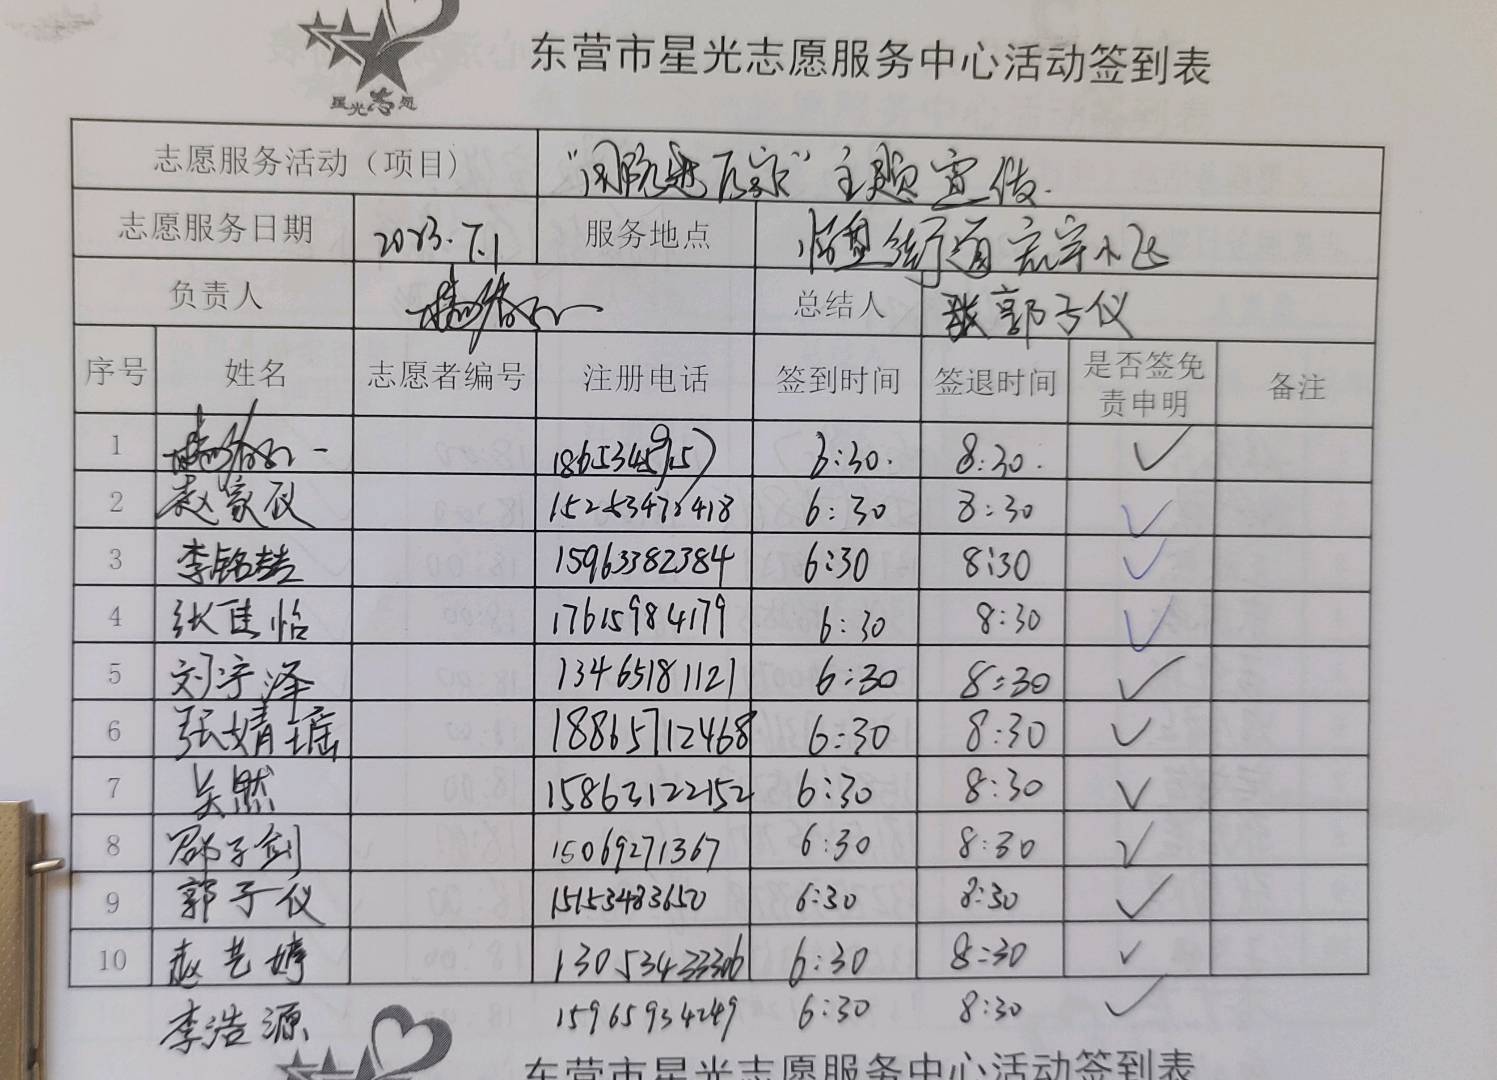 星光志愿
东营市星光志愿服务中心活动签到表
志愿服务活动（项目） 主题宣传.
志愿服务日期 2023.7.1 服务地点 临盘街道宏宇小区
负责人 总结人 郭子仪
序号 姓名 志愿者编号 注册电话 签到时间 签退时间 是否签免责申明 备注
1 6:30. 8:30. ✓
2 赵家仪 6:30 8:30 ✓
3 李铭喆 15963382384 6:30 8:30 ✓
4 张佳怡 17615984179 6:30 8:30 ✓
5 刘宇泽 13465181121 6:30 8:30 ✓
6 张婧瑶 18865712468 6:30 8:30 ✓
7 吴然 15863122152 6:30 8:30 ✓
8 邵子剑 15069271367 6:30 8:30 ✓
9 郭子仪 15153483650 6:30 8:30 ✓
10 赵艺婷 6:30 8:30 ✓
李浩源 15965934249 6:30 8:30 ✓
东营市星光志愿服务中心活动签到表